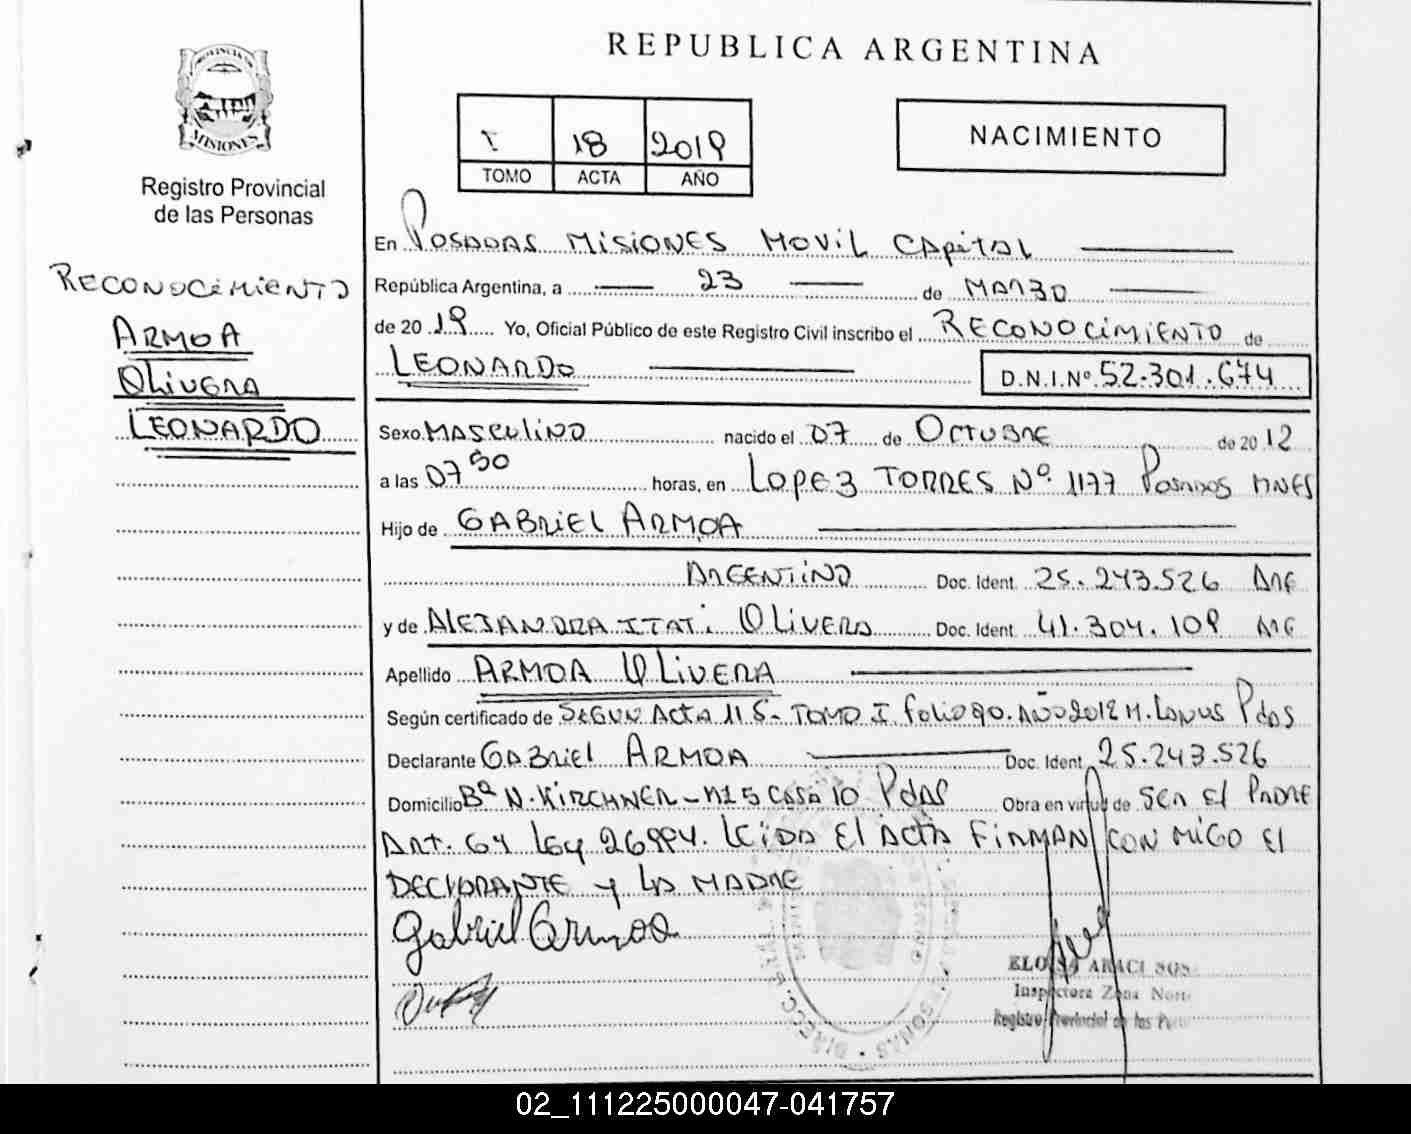 REPUBLICA ARGENTINA
PROVINCIA DE
MISIONES
Registro Provincial
de las Personas
I 18 2019
TOMO ACTA AÑO
NACIMIENTO
RECONOCIMIENTO
ARMOA
OLIVERA
LEONARDO
En POSADAS MISIONES MOVIL CAPITAL
República Argentina, a 23 de MARZO
de 20 19 Yo, Oficial Público de este Registro Civil inscribo el RECONOCIMIENTO de
LEONARDO D.N.I.Nº 52.301.674
Sexo MASCULINO nacido el 07 de OCTUBRE de 20 12
a las 07 50 horas, en LOPEZ TORRES Nº 1177 Posadas MNES
Hijo de GABRIEL ARMOA
ARGENTINO Doc. Ident. 25.243.526 ARG
y de ALEJANDRA ITATI OLIVERA Doc. Ident. 41.304.109 ARG
Apellido ARMOA OLIVERA
Según certificado de SEGUN ACTA 115- TOMO I folio 90. AÑO 2012 M. Lanus Pdas
Declarante GABRIEL ARMOA Doc. Ident. 25.243.526
Domicilio Bº N. KIRCHNER - M15 CASA 10 Pdas Obra en virtud de SER El PADRE
ART. 64 Ley 26994. LEIDA El ACTA FIRMAN CON MIGO El
DECLARANTE y LA MADRE
Gabriel Armoa
ELOISA ARACI SOS
Inspectora Zona Norte
Registro Provincial de las Per
02_111225000047-041757